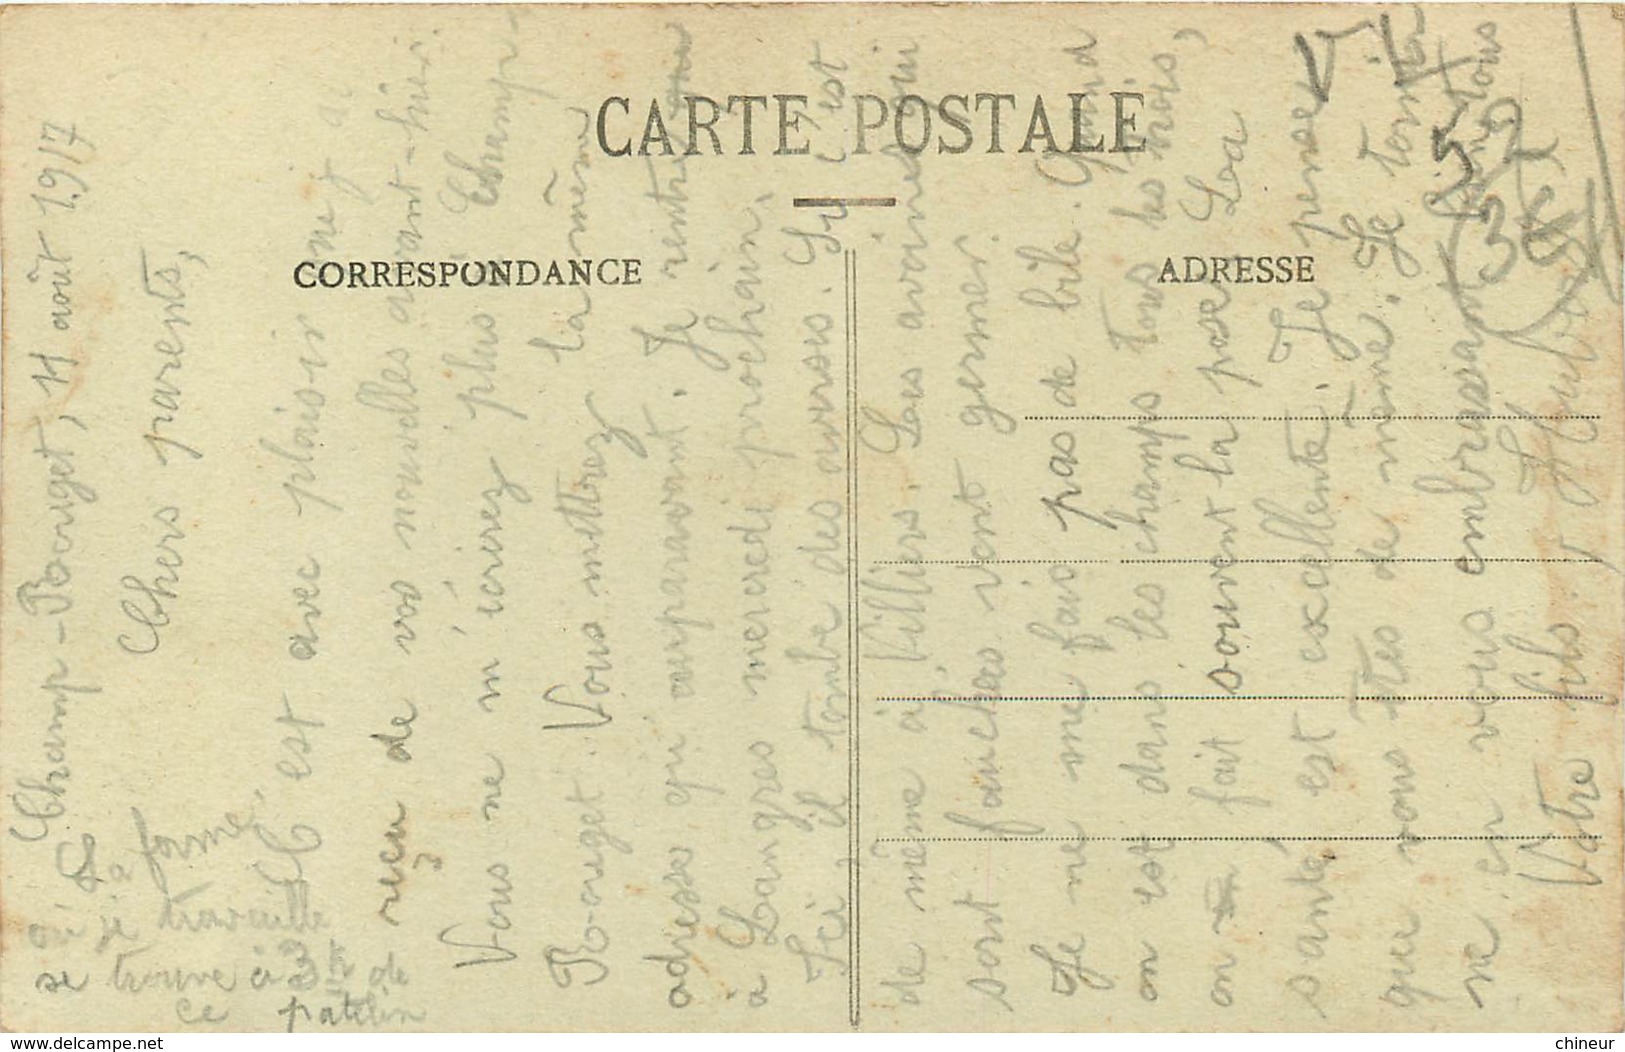 CARTE POSTALE
CORRESPONDANCE
ADRESSE
Champ-Bouget, 11 août 1917
Chers parents,
C'est avec plaisir que j'ai
reçu de vos nouvelles avant-hier.
Vous ne m'écrirez plus Champ-
Bouget. Vous mettrez la même
adresse qu'auparavant. Je rentre
à Langres mercredi prochain.
Ici, il tombe des averses. Si c'est
de même à Villiers. Les avoines qui
sont fauchées vont germer.
Je ne me fais pas de bile. Quand
on est dans les champs tous les trois,
on fait souvent la pose. La
santé est excellente. Je pense
que vous êtes de même. Je termi-
ne en vous embrassant
Votre fils.
La ferme
où je travaille
se trouve à 3 km de
ce patelin
www.delcampe.net
chineur